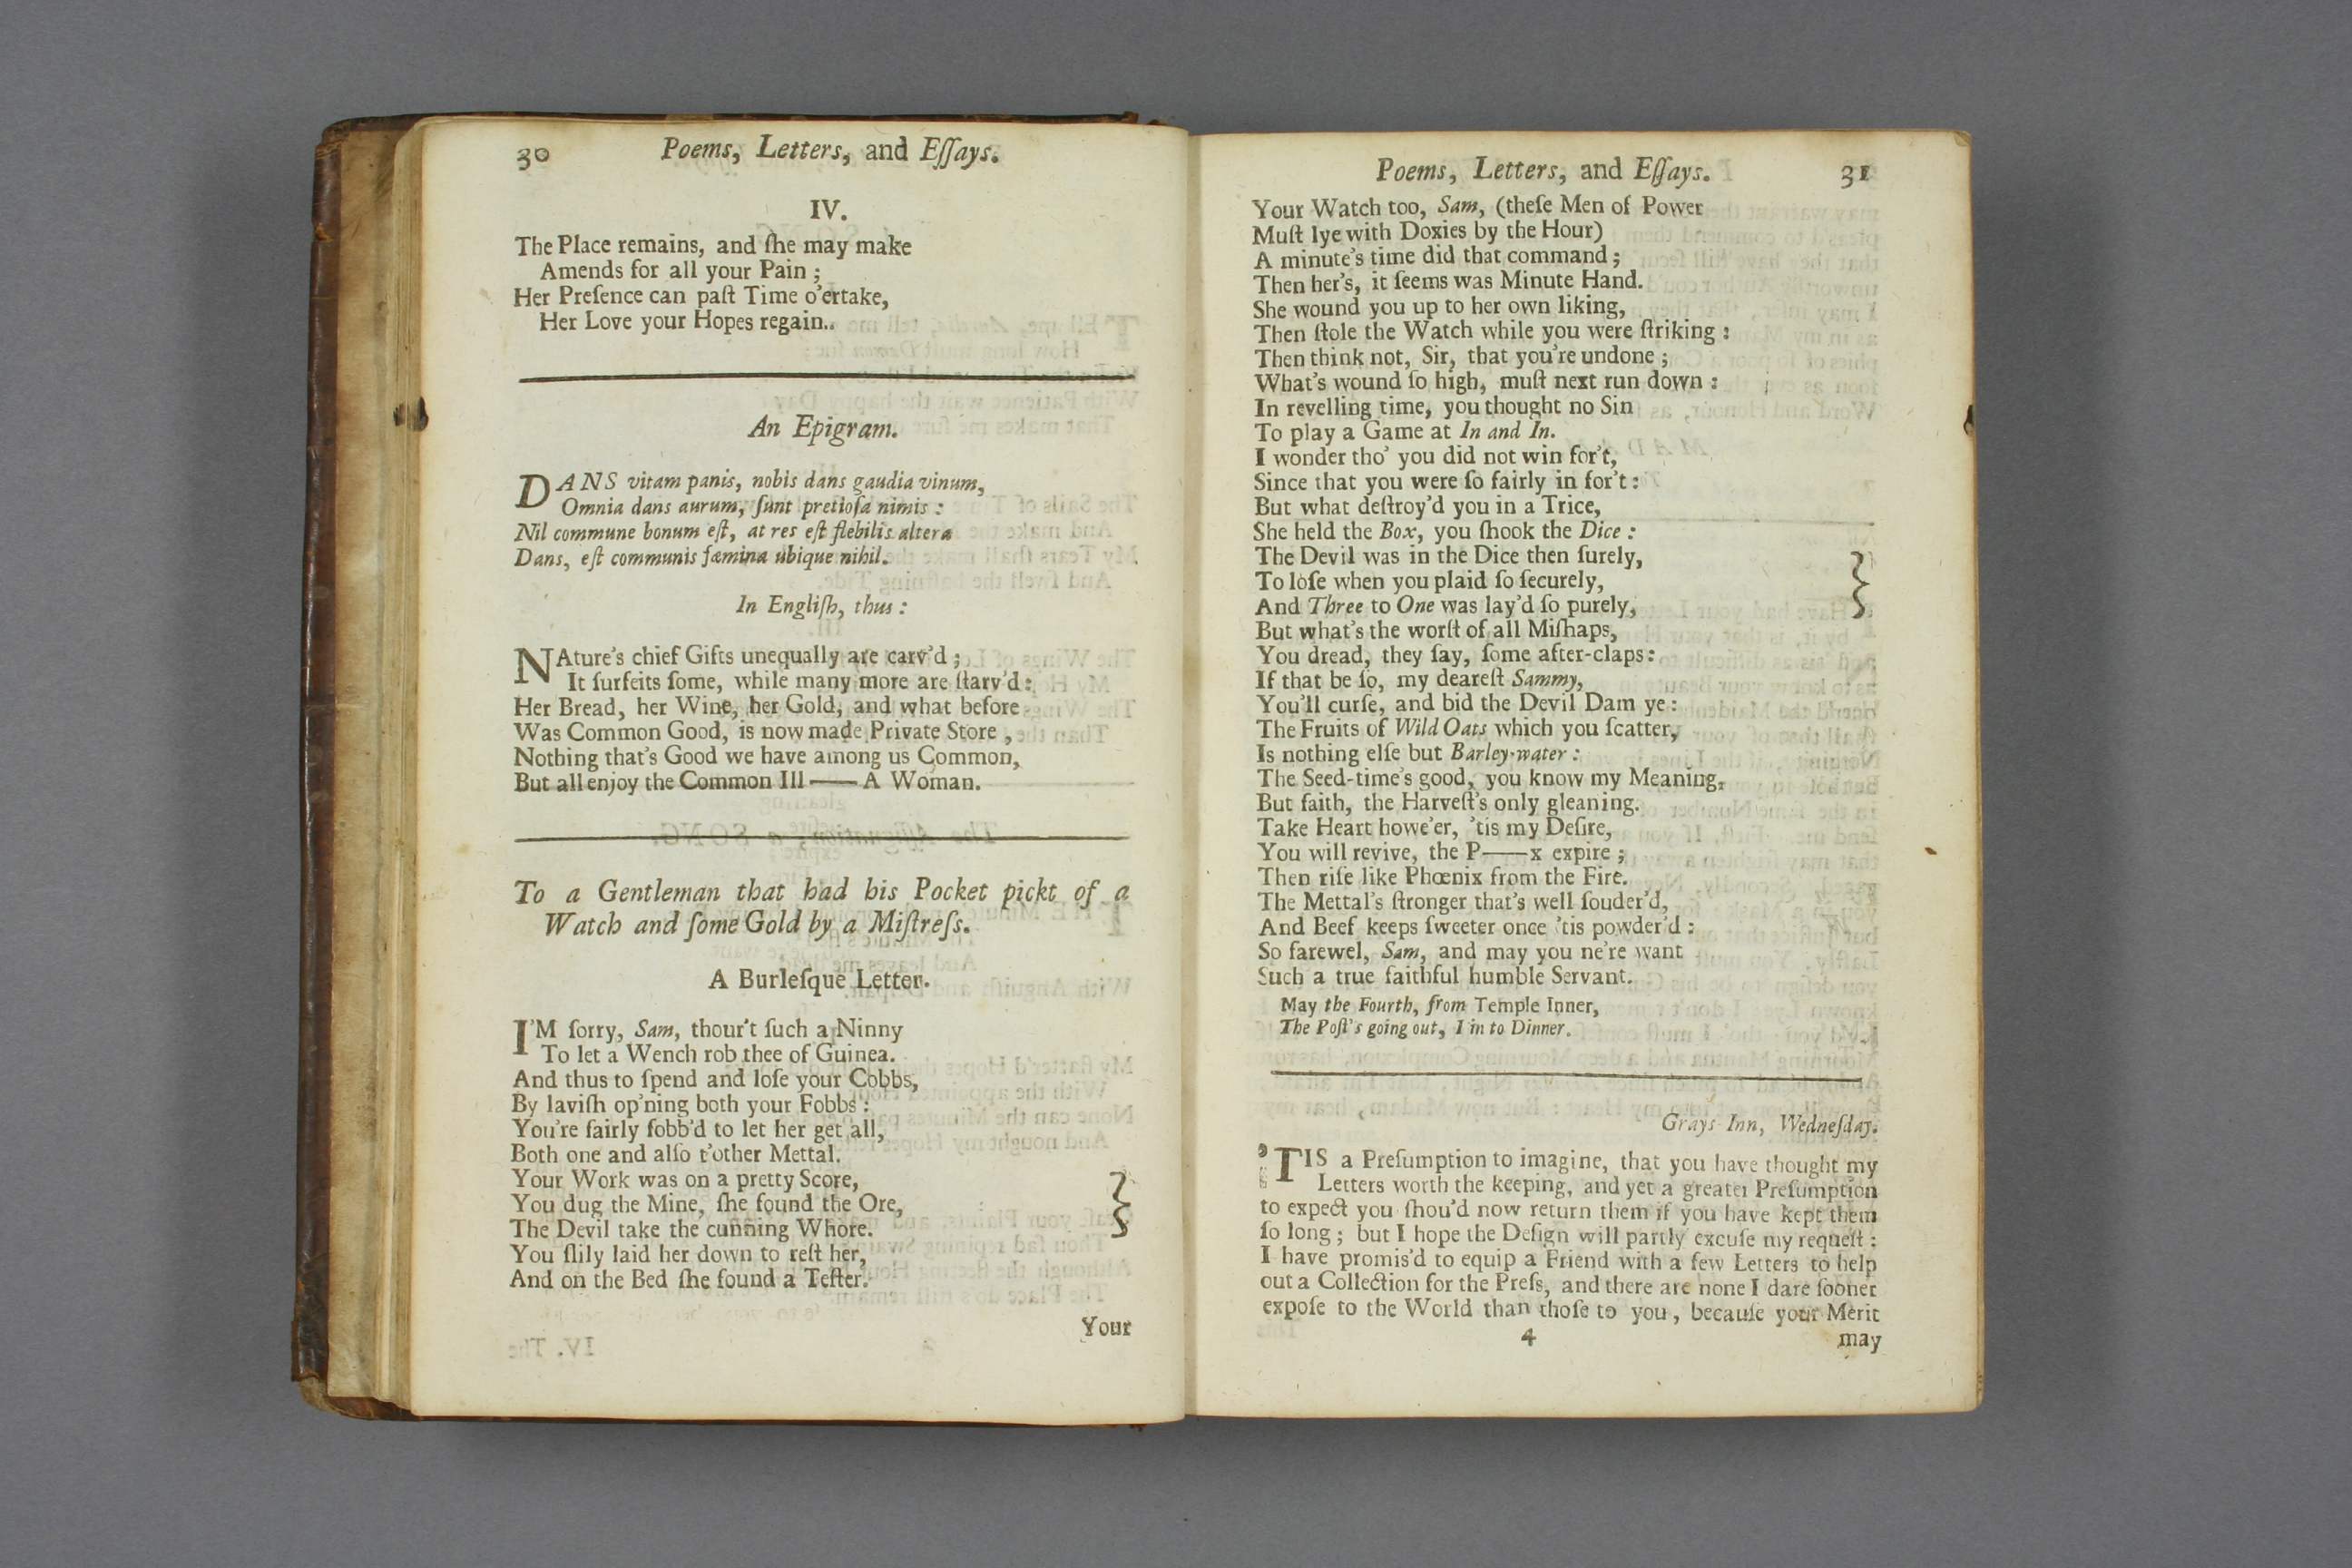 30 Poems, Letters, and Eſſays.
IV.
The Place remains, and ſhe may make
Amends for all your Pain ;
Her Preſence can paſt Time o'ertake,
Her Love your Hopes regain..
An Epigram.
DANS vitam panis, nobis dans gaudia vinum,
Omnia dans aurum, ſunt pretioſa nimis :
Nil commune bonum eſt, at res eſt flebilis altera
Dans, eſt communis fæmina ubique nihil.
In Engliſh, thus :
NAture's chief Gifts unequally are carv'd ;
It ſurfeits ſome, while many more are ſtarv'd :
Her Bread, her Wine, her Gold, and what before
Was Common Good, is now made Private Store ,
Nothing that's Good we have among us Common,
But all enjoy the Common Ill —— A Woman.
To a Gentleman that had his Pocket pickt of a
Watch and ſome Gold by a Miſtreſs.
A Burleſque Letter.
I'M ſorry, Sam, thour't ſuch a Ninny
To let a Wench rob thee of Guinea.
And thus to ſpend and loſe your Cobbs,
By laviſh op'ning both your Fobbs :
You're fairly fobb'd to let her get all,
Both one and alſo t'other Mettal.
Your Work was on a pretty Score,
You dug the Mine, ſhe found the Ore,
The Devil take the cunning Whore.
You ſlily laid her down to reſt her,
And on the Bed ſhe found a Teſter.
Your
Poems, Letters, and Eſſays. 31
Your Watch too, Sam, (theſe Men of Power
Muſt lye with Doxies by the Hour)
A minute's time did that command ;
Then her's, it ſeems was Minute Hand.
She wound you up to her own liking,
Then ſtole the Watch while you were ſtriking :
Then think not, Sir, that you're undone ;
What's wound ſo high, muſt next run down :
In revelling time, you thought no Sin
To play a Game at In and In.
I wonder tho' you did not win for't,
Since that you were ſo fairly in for't :
But what deſtroy'd you in a Trice,
She held the Box, you ſhook the Dice :
The Devil was in the Dice then ſurely,
To loſe when you plaid ſo ſecurely,
And Three to One was lay'd ſo purely,
But what's the worſt of all Miſhaps,
You dread, they ſay, ſome after-claps :
If that be ſo, my deareſt Sammy,
You'll curſe, and bid the Devil Dam ye :
The Fruits of Wild Oats which you ſcatter,
Is nothing elſe but Barley-water :
The Seed-time's good, you know my Meaning,
But faith, the Harveſt's only gleaning.
Take Heart howe'er, 'tis my Deſire,
You will revive, the P——x expire ;
Then riſe like Phœnix from the Fire.
The Mettal's ſtronger that's well ſouder'd,
And Beef keeps ſweeter once 'tis powder'd :
So farewel, Sam, and may you ne're want
Such a true faithful humble Servant.
May the Fourth, from Temple Inner,
The Poſt's going out, I in to Dinner.
Grays Inn, Wedneſday.
'TIS a Preſumption to imagine, that you have thought my
Letters worth the keeping, and yet a greater Preſumption
to expect you ſhou'd now return them if you have kept them
ſo long ; but I hope the Deſign will partly excuſe my requeſt :
I have promis'd to equip a Friend with a few Letters to help
out a Collection for the Preſs, and there are none I dare ſooner
expoſe to the World than thoſe to you, becauſe your Merit
4 may